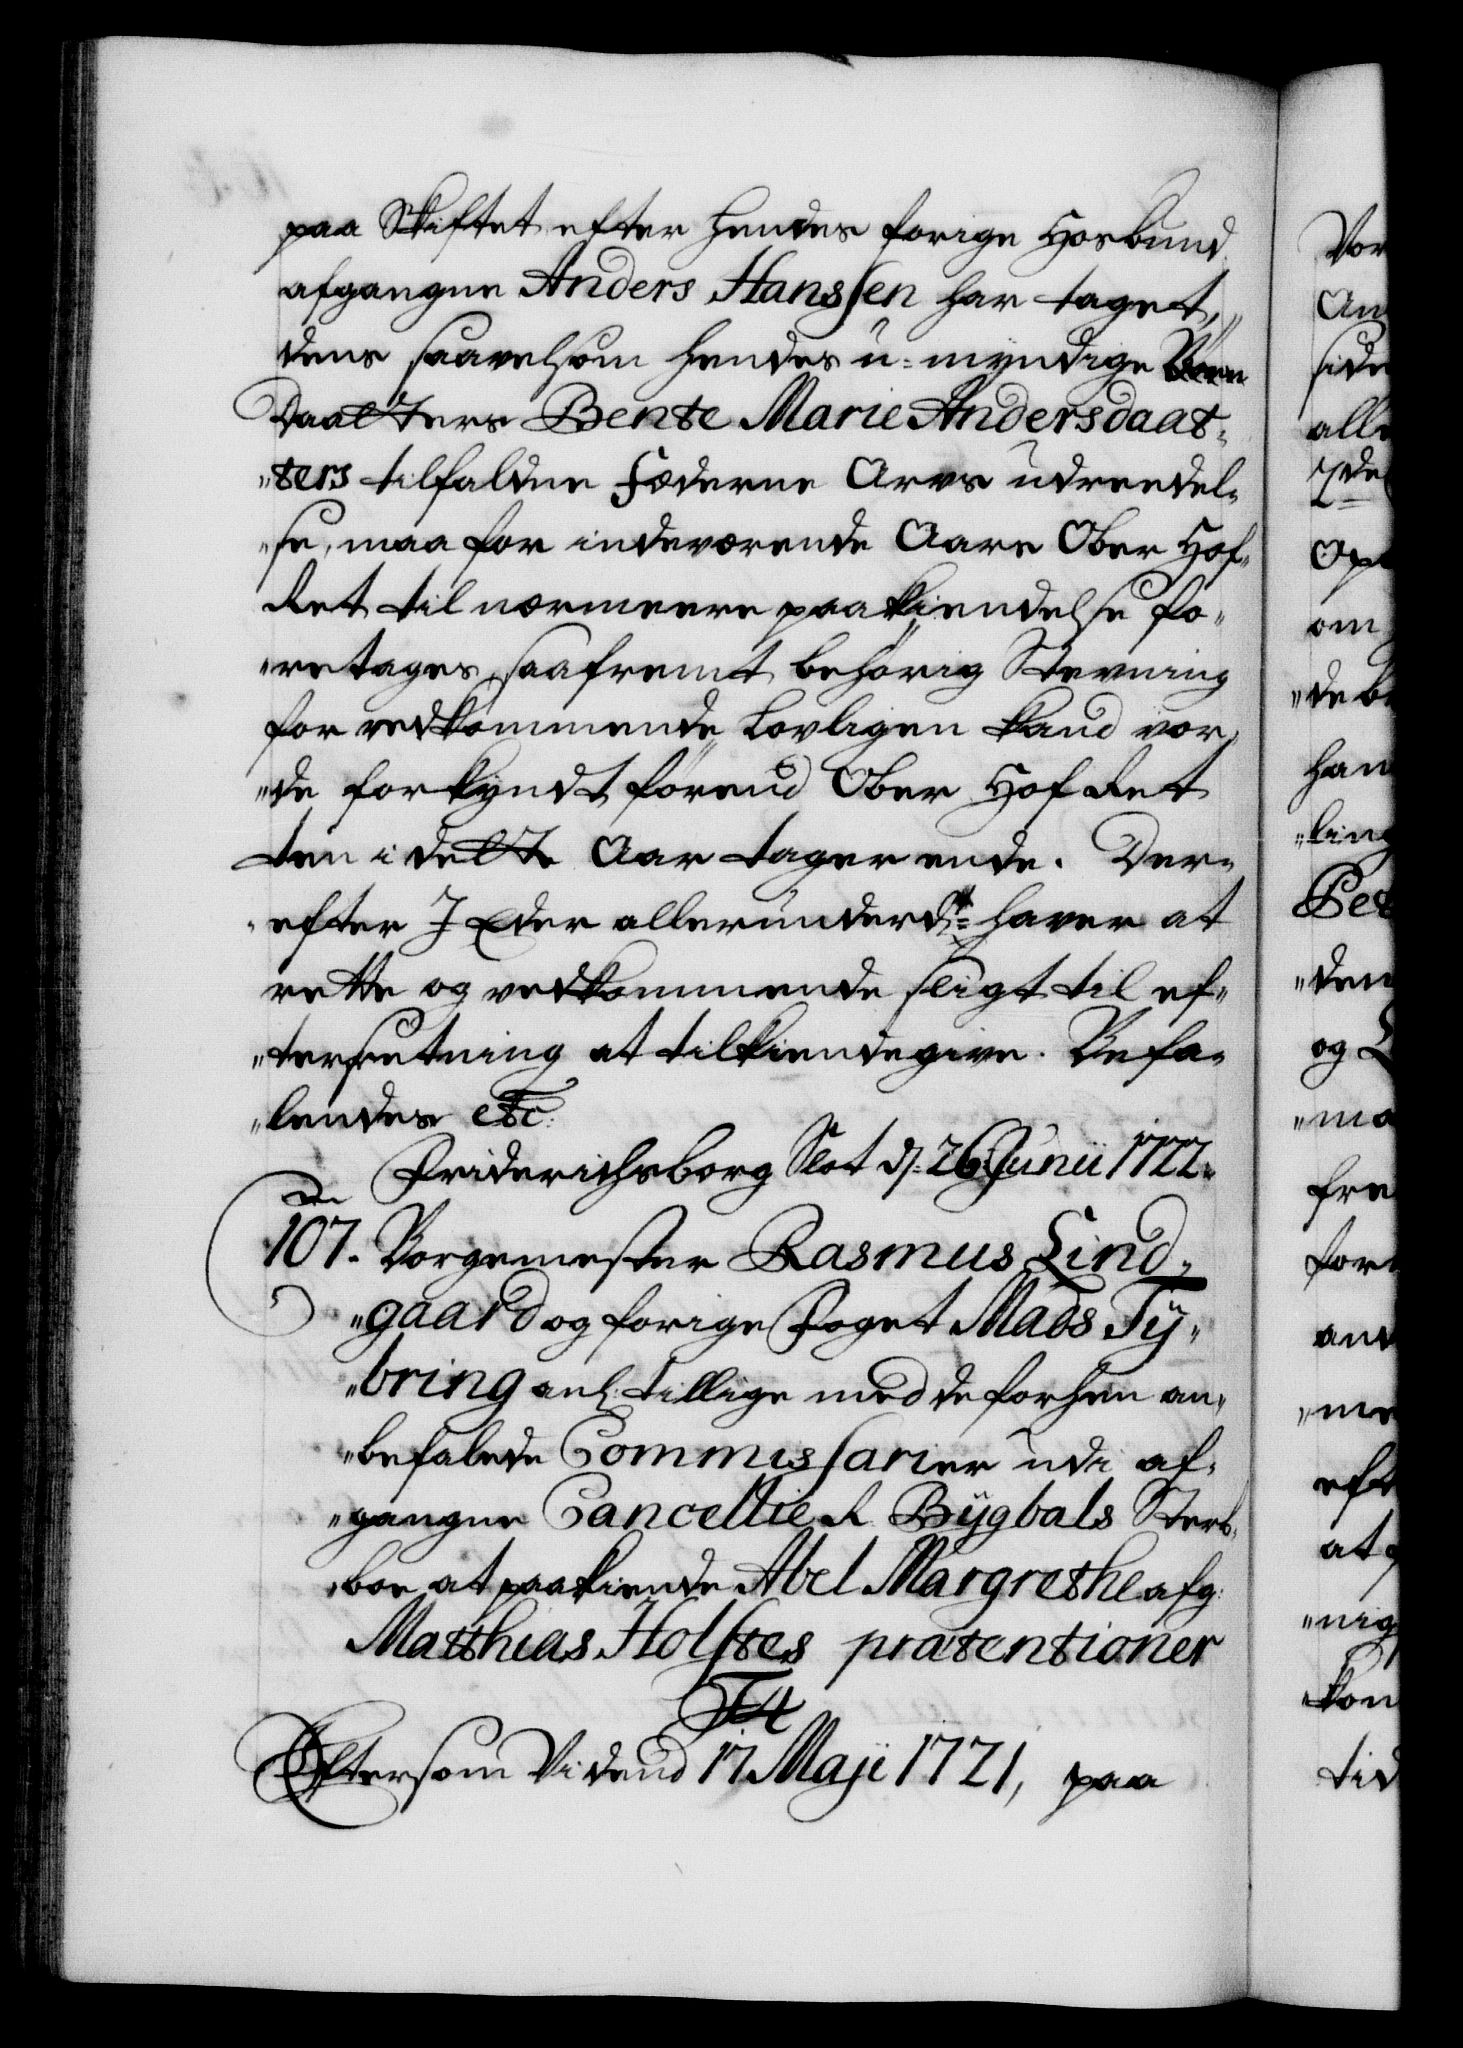 paa Skiftet efter hendes forige Hosbund
afgangne Anders Hanssen har taget,
dens saavelsom hendes u-myndige
Daatters Bente Marie Andersdaat-
"ters tilfaldne Fæderne Arvs udreedel-
"se, maa for indeværende Aars Ober Hof-
Ret til nærmeere paakiendelse fo-
"retages, saafremt behörig Stevning
for vedkommende Lovligen kand vor-
"de forkyndt förend Ober Hof Ret
ten i dette Aar tager ende. Der-
"efter I Eder allerunderd:st haver at
rette og vedkommende sligt til ef-
"terretning at tilkiendegive. Befa-
"lendes etc:
Friderichsborg Slot d: 26 Junii 1722.
107. Borgemester Rasmus Lind-
"gaard og forige Foget Mads Ty-
"bring anl: tillige med de forhen an-
"befalede Commissarier udi af-
"gangne Cancellie R. Bygbals Sterb-
"boe at paakiende Abel Margrethe afg:
Matthias Holstes prætentioner
F4
Eftersom Vi dend 17 Maji 1721, paa
Vor
An
side
alle
7de
Op
om
"de b
han
"ling
Pet
"den
og L
"ma
fre
for
and
"me
eft
at
"nig
kon
tid